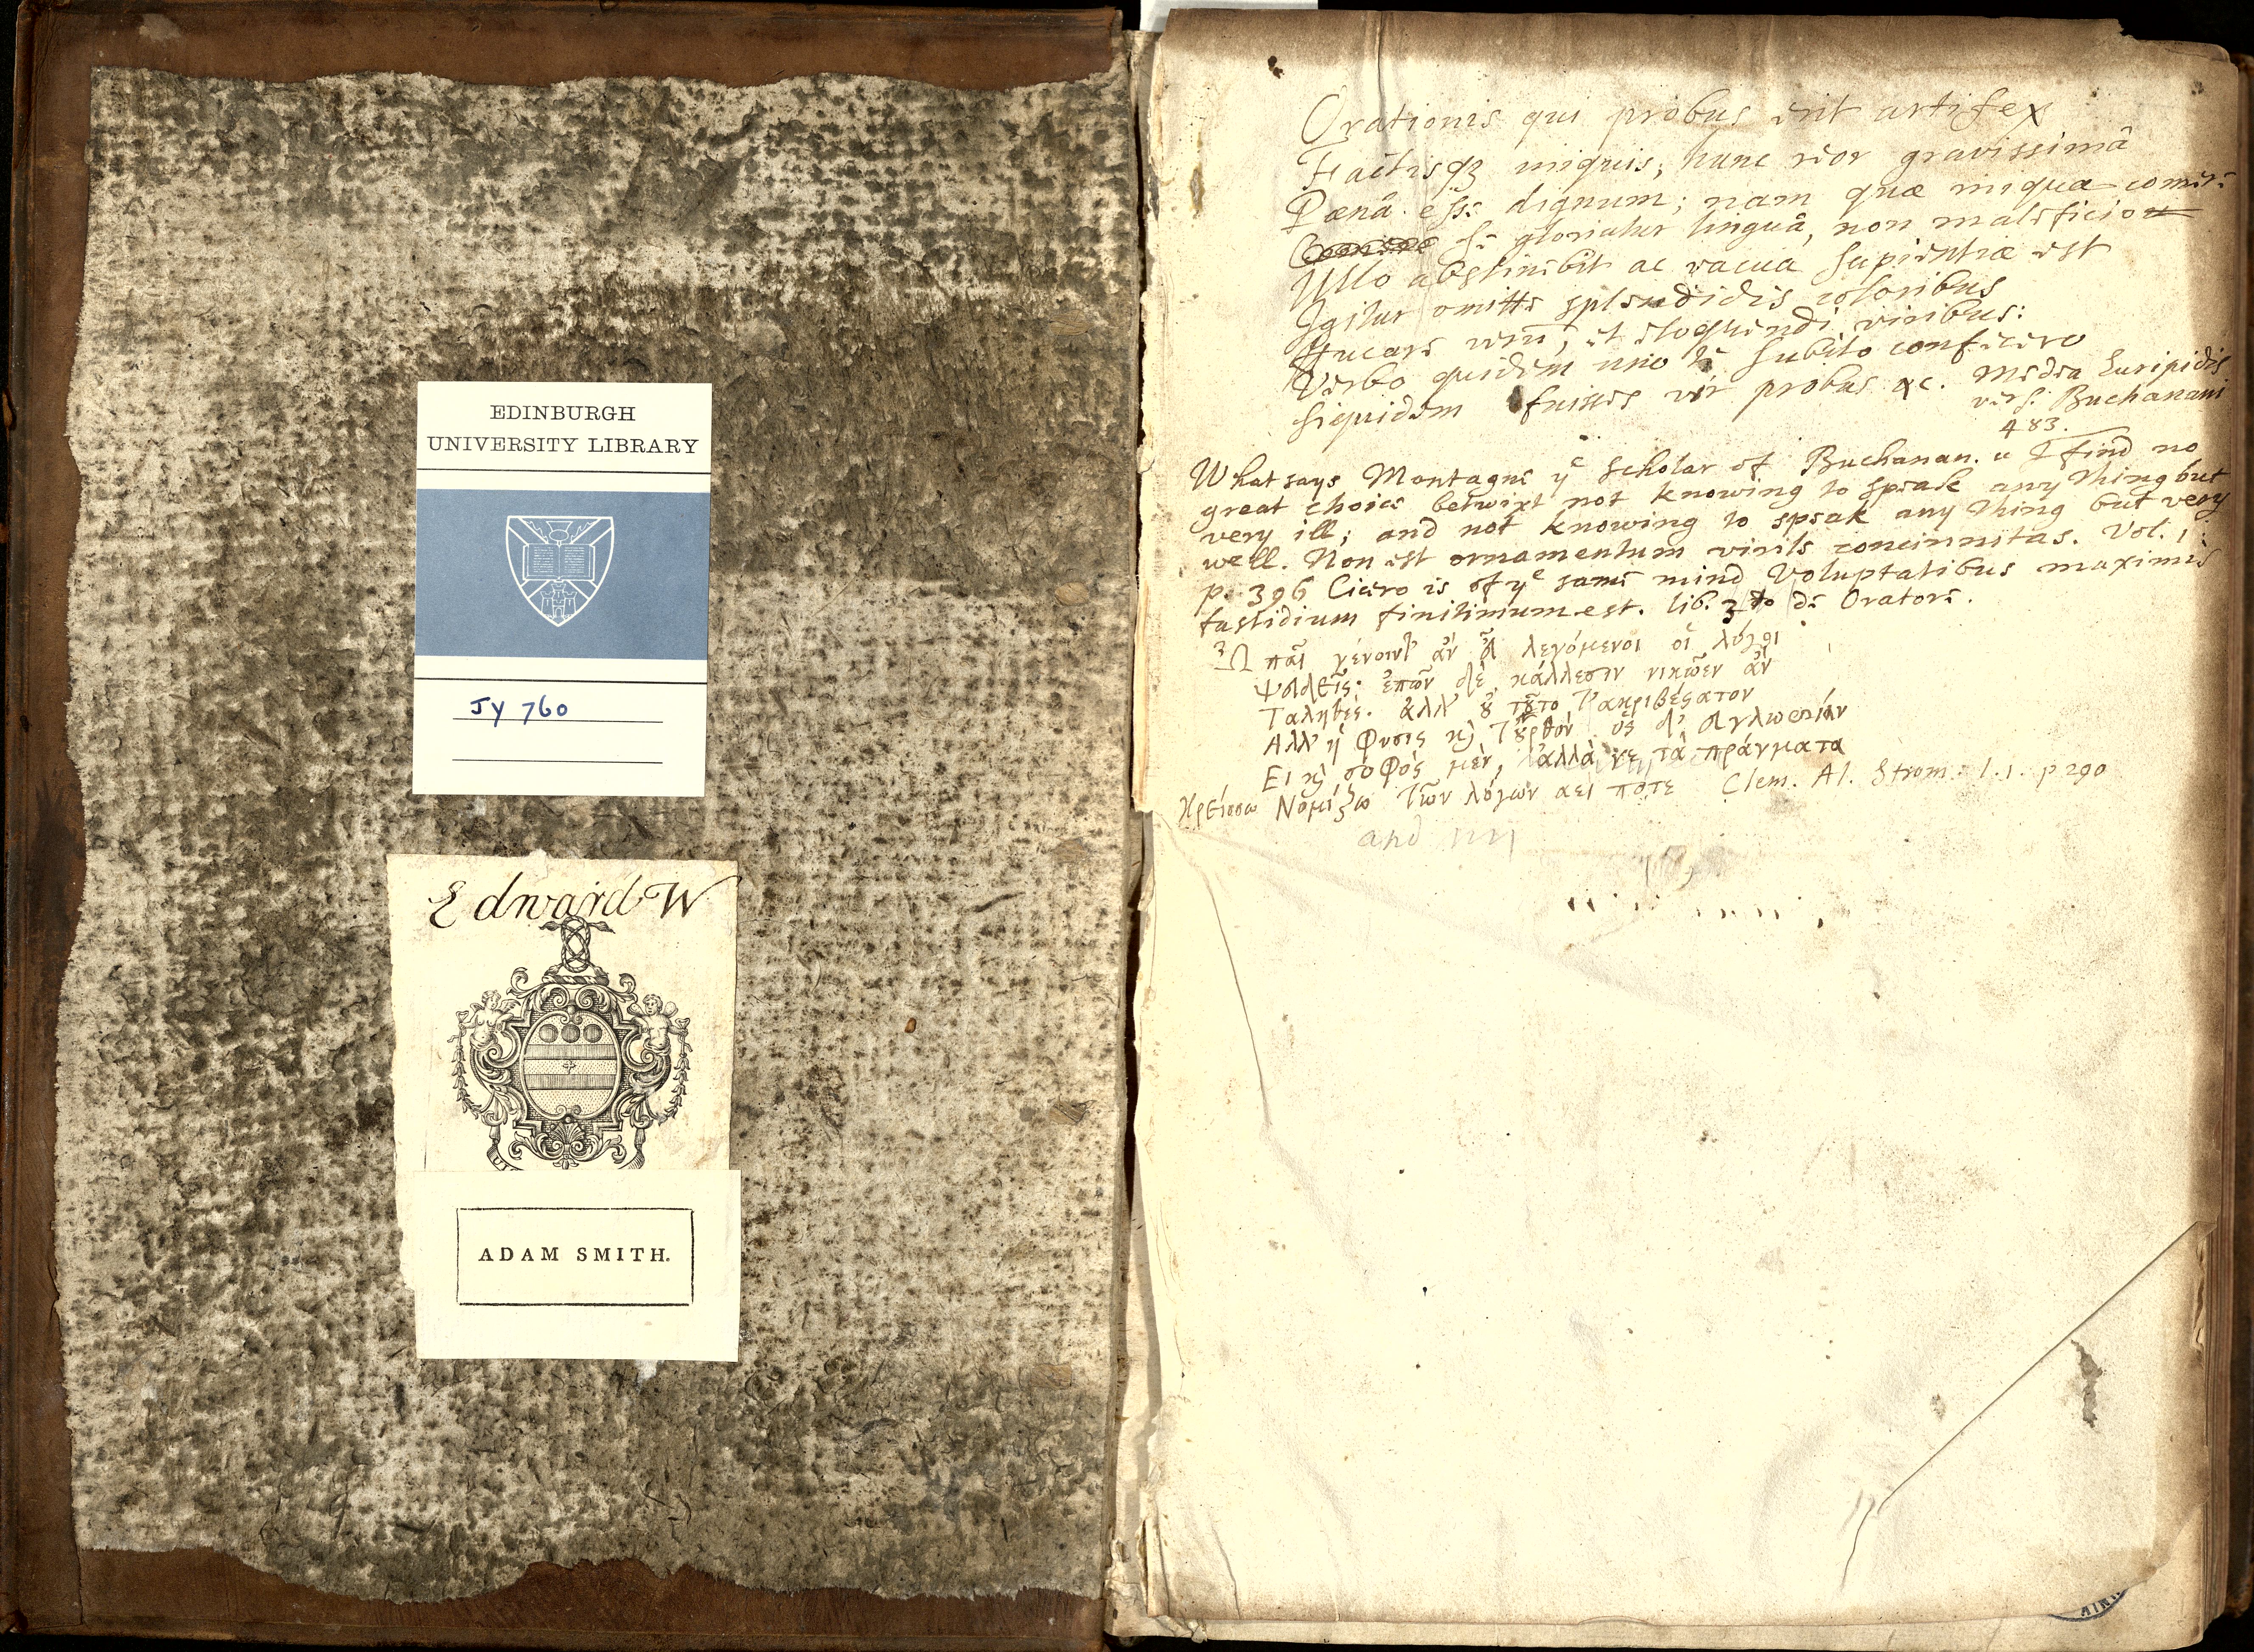 EDINBURGH
UNIVERSITY LIBRARY
JY 760
Edward W
ADAM SMITH.
Orationis qui probus erit artifex
Factisqz iniquis, hunc reor gravissimâ
Pœnâ esse dignum; nam quæ iniqua comere
se gloriatur linguâ, non maleficio
Ullo abstinebit ac vacua sapientiæ est
Igitur omitte splendidis coloribus
ffucare verū, et eloquendi viribus:
Verbo quidem uno te subito conficero
siquidem fuisses vir probus &c. Medea Euripidis
vers. Buchanani
483.
What says Montagne yͤ scholar of Buchanan. " I find no
great choice betwixt not knowing to speak any thing but
very ill; and not knowing to speak any thing but very
well. Non est ornamentum virile concinnitas. Vol. 1.
p. 396 Cicero is of yͤ same mind Voluptatibus maximis
fastidium finitimum est. lib. 3 de Oratore.
Ὦ παῖ γένοιντ' ἂν λεγόμενοι οἱ λόγοι
ψευδεῖς· ἐπῶν δὲ κάλλεσιν νικῶεν ἂν
Ταληθές. ἀλλ' ȣ τȣ͂το τ' ἀκριβέϛατον
Αλλ' ἡ φυσις κ̀ τȣρθόν ὃς δ' ευγλωσσίᾳν
Ει κ̀ σοφὸς μὲν, ἀλλὰ γε τὰ πράγματα
Κρείσσω Νομίζω τῶν λόγων αει ποτε Clem. Al. Strom. l. 1. p 290
and